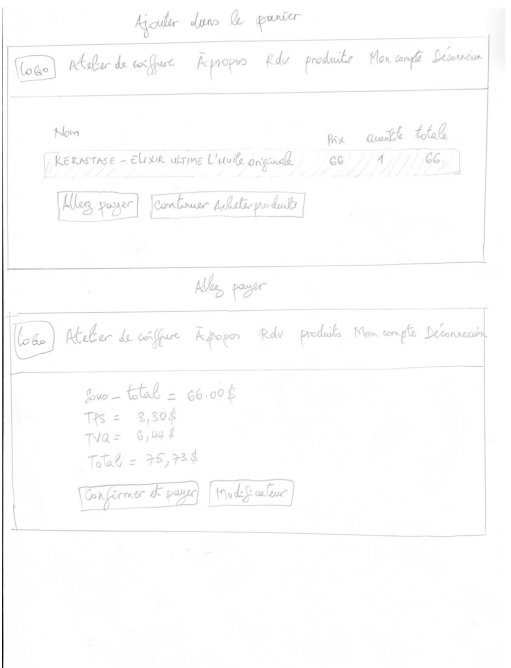 Ajouter dans le panier
LOGO Atelier de coiffure À propos Rdv produits Mon compte Déconnexion
Nom Prix Quantité totale
KERASTASE - ELIXIR ULTIME L'Huile originale 66 1 66
Allez payer Continuer Acheter produits
Allez payer
LOGO Atelier de coiffure À propos Rdv produits Mon compte Déconnexion
Sous-total = 66.00$
TPS = 3,30$
TVQ = 6,44$
Total = 75,73$
Confirmer et payer Modificateur